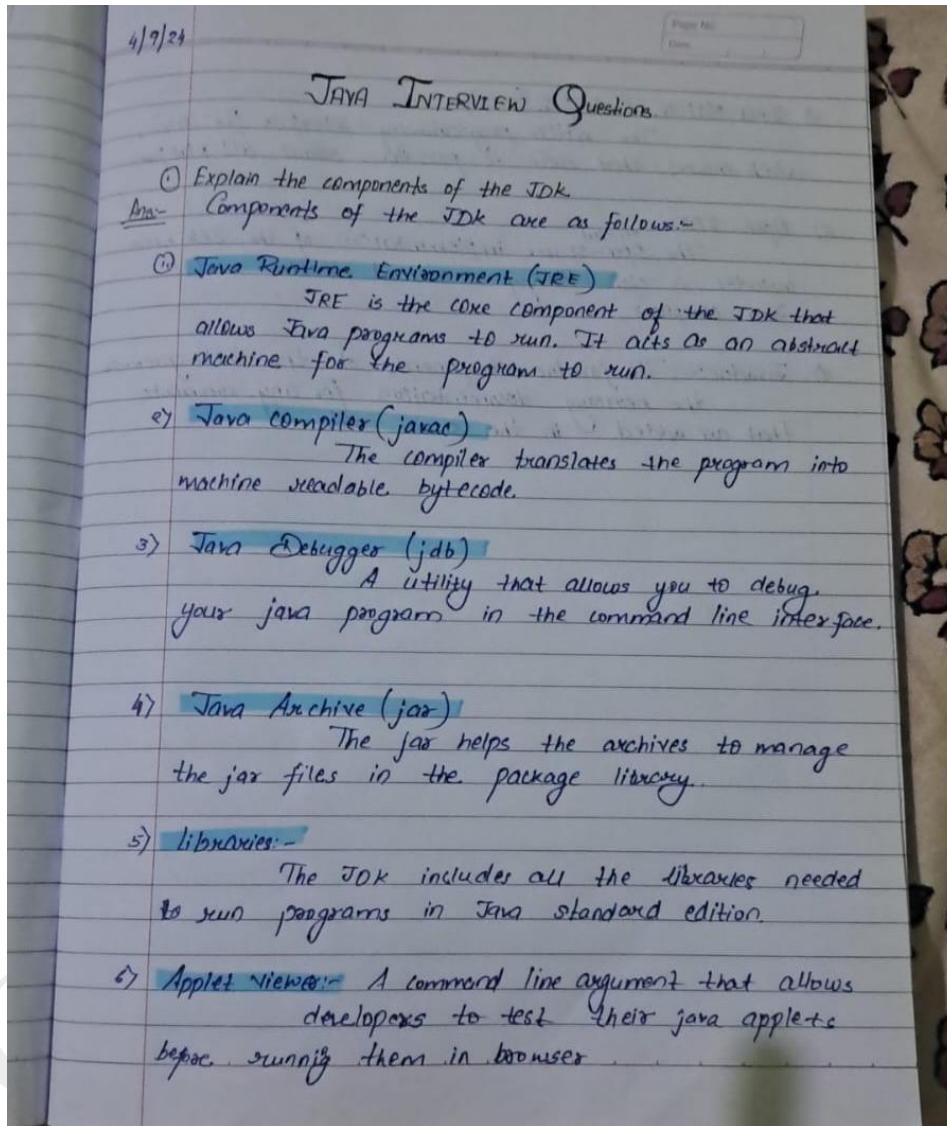 Page No.
Date
4/9/24
JAVA INTERVIEW Questions
① Explain the components of the JDK.
Ans:- Components of the JDK are as follows:-
① Java Runtime Environment (JRE)
JRE is the core component of the JDK that
allows Java programs to run. It acts as an abstract
machine for the program to run.
2) Java compiler (javac)
The compiler translates the program into
machine readable bytecode.
3) Java Debugger (jdb)
A utility that allows you to debug
your java program in the command line interface.
4) Java Archive (jar)
The jar helps the archives to manage
the jar files in the package library.
5) libraries:-
The JDK includes all the libraries needed
to run programs in Java standard edition.
6) Applet viewer:- A command line argument that allows
developers to test their java applets
before running them in browser